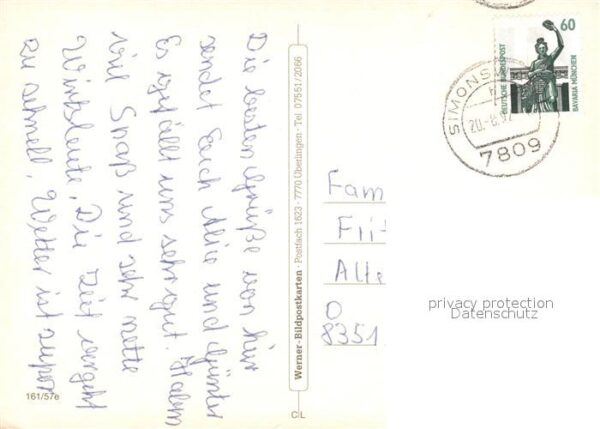 Die besten Grüße von hier
sendet Euch Alie und Günter
Es gefällt uns sehr gut. Haben
viel Spaß und sehr nette
Wirtsleute. Die Zeit vergeht
zu schnell, Wetter ist super
161/57e
Werner-Bildpostkarten · Postfach 1623 · 7770 Überlingen · Tel. 07551/2066
CL
60
DEUTSCHE BUNDESPOST
BAVARIA MÜNCHEN
SIMONSW
20.-8.92
7809
Fam
Fri
Alte
O
8351
privacy protection
Datenschutz